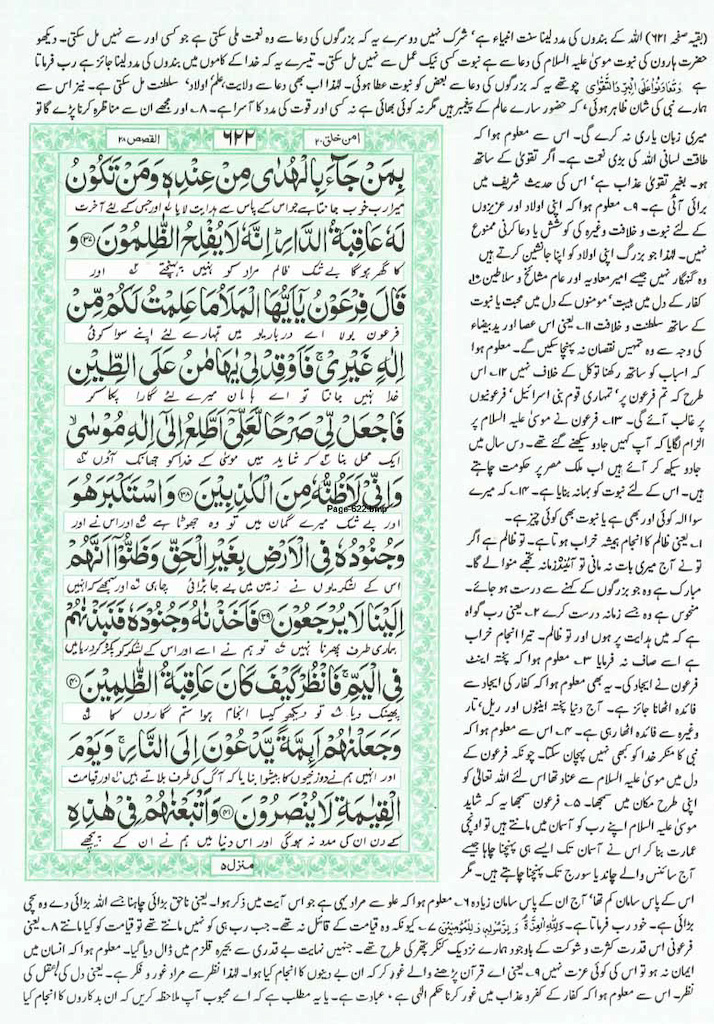 (بقیہ صفحہ ۶۲۱) اللہ کے بندوں کی مدد لینا سنت انبیاء ہے، شرک نہیں دوسرے یہ کہ بزرگوں کی دعا سے وہ نعمت ملی سکتی ہے جو کسی اور سے نہیں مل سکتی۔ دیکھو
حضرت ہارون کی نبوت موسیٰ علیہ السلام کی دعا سے ہے نبوت کسی نیک عمل سے نہیں مل سکتی۔ تیسرے یہ کہ خدا کے کاموں میں بندوں کی مدد لینا جائز ہے رب فرماتا
ہے وَتَعَاوَنُوْا عَلَى الْبِرِّ وَالتَّقْوٰى چوتھے یہ کہ بزرگوں کی دعا سے بعض کو نبوت عطا ہوئی۔ لہٰذا اب بھی دعا سے ولایت، علم، اولاد، سلطنت مل سکتی ہے۔ نیز اس سے
ہمارے نبی کی شان ظاہر ہوئی، کہ حضور سارے عالم کے پیغمبر ہیں مگر نہ کوئی بھائی ہے نہ کسی اور قوت کی مدد کا آسرا ہے۔ ۸۔ اور مجھے ان سے مناظرہ کرنا پڑے گا تو
میری زبان یاری نہ کرے گی۔ اس سے معلوم ہوا کہ
طاقت لسانی اللہ کی بڑی نعمت ہے۔ اگر تقویٰ کے ساتھ
ہو۔ بغیر تقویٰ عذاب ہے، اس کی حدیث شریف میں
برائی آئی ہے۔ ۹۔ معلوم ہوا کہ اپنی اولاد اور عزیزوں
کے لئے نبوت و خلافت وغیرہ کی کوشش یا دعا کرنی ممنوع
نہیں۔ لہٰذا جو بزرگ اپنی اولاد کو اپنا جانشین کرتے ہیں
وہ گنہگار نہیں جیسے امیر معاویہ اور عام مشائخ و سلاطین ۱۰۔
کفار کے دل میں ہیبت، مومنوں کے دل میں محبت یا نبوت
کے ساتھ سلطنت و خلافت ۱۱۔ یعنی اس عصا اور ید بیضاء
کی وجہ سے وہ تمہیں نقصان نہ پہنچا سکیں گے۔ معلوم ہوا
کہ اسباب کو ساتھ رکھنا توکل کے خلاف نہیں ۱۲۔ اس
طرح کہ تم فرعون پر، تمہاری قوم بنی اسرائیل، فرعونیوں
پر غالب آئے گی۔ ۱۳۔ فرعون نے موسیٰ علیہ السلام پر
الزام لگایا کہ آپ کہیں جادو سیکھنے گئے تھے۔ دس سال میں
جادو سیکھ کر آئے ہیں اب ملک مصر پر حکومت چاہتے
ہیں۔ اس کے لئے نبوت کو بہانہ بنایا ہے۔ ۱۴۔ کہ میرے
سوا الہ کوئی اور بھی ہے یا نبوت بھی کوئی چیز ہے۔
۱۔ یعنی ظالم کا انجام ہمیشہ خراب ہوتا ہے۔ تو ظالم ہے اگر
تو نے آج میری بات نہ مانی تو آئندہ زمانہ تجھے منوا لے گا۔
مبارک ہے وہ جو بزرگوں کے کہنے سے درست ہو جائے۔
منحوس ہے وہ جسے زمانہ درست کرے ۲۔ یعنی رب گواہ
ہے کہ میں ہدایت پر ہوں اور تو ظالم۔ تیرا انجام خراب
ہے اسے صاف نہ فرمایا ۳۔ معلوم ہوا کہ پختہ اینٹ
فرعون نے ایجاد کی۔ یہ بھی معلوم ہوا کہ کفار کی ایجاد سے
فائدہ اٹھانا جائز ہے۔ آج دنیا پختہ اینٹوں اور ریل، تار
وغیرہ سے فائدہ اٹھا رہی ہے۔ ۴۔ اس سے معلوم ہوا کہ
نبی کا منکر خدا کو کبھی نہیں پہچان سکتا۔ چونکہ فرعون کے
دل میں موسیٰ علیہ السلام سے عناد تھا اس لئے اللہ تعالیٰ کو
اپنی طرح مکان میں سمجھا۔ ۵۔ فرعون سمجھا یہ کہ شاید
موسیٰ علیہ السلام اپنے رب کو آسمان میں مانتے ہیں تو اونچی
عمارت بنا کر اس نے آسمان تک ایسے ہی پہنچنا چاہا جیسے
آج سائنس والے چاند یا سورج تک پہنچنا چاہتے ہیں۔ مگر
القصص ۲۸
۶۲۲
امن خلق ۲۰
بِمَنْ جَآءَ بِالْهُدٰى مِنْ عِنْدِهٖ وَمَنْ تَكُوْنُ
میرا رب خوب جانتا ہے جو اس کے پاس سے ہدایت لایا اور جس کے لئے آخرت
لَهٗ عَاقِبَةُ الدَّارِ ؕ اِنَّهٗ لَا يُفْلِحُ الظّٰلِمُوْنَ ﴿۳۷﴾ وَ
کا گھر ہوگا بے شک ظالم مراد کو نہیں پہنچتے اور
قَالَ فِرْعَوْنُ يٰۤاَيُّهَا الْمَلَاُ مَا عَلِمْتُ لَكُمْ مِّنْ
فرعون بولا اے درباریو میں تمہارے لئے اپنے سوا کوئی
اِلٰهٍ غَيْرِىْ ۚ فَاَوْقِدْ لِىْ يٰهَامٰنُ عَلَى الطِّيْنِ
خدا نہیں جانتا تو اے ہامان میرے لئے گارا پکا کر
فَاجْعَلْ لِّىْ صَرْحًا لَّعَلِّىْۤ اَطَّلِعُ اِلٰۤى اِلٰهِ مُوْسٰى ۙ
ایک محل بنا کہ شاید میں موسیٰ کے خدا کو جھانک آؤں
وَاِنِّىْ لَاَظُنُّهٗ مِنَ الْكٰذِبِيْنَ ﴿۳۸﴾ وَاسْتَكْبَرَ هُوَ
Page-622.bmp
اور بے شک میرے گمان میں تو وہ جھوٹا ہے اور اس نے اور
وَجُنُوْدُهٗ فِى الْاَرْضِ بِغَيْرِ الْحَقِّ وَظَنُّوْۤا اَنَّهُمْ
اس کے لشکریوں نے زمین میں بے جا بڑائی چاہی اور سمجھے کہ انہیں
اِلَيْنَا لَا يُرْجَعُوْنَ ﴿۳۹﴾ فَاَخَذْنٰهُ وَجُنُوْدَهٗ فَنَبَذْنٰهُمْ
ہماری طرف پھرنا نہیں تو ہم نے اسے اور اس کے لشکر کو پکڑ کر دریا میں
فِى الْيَمِّ ۚ فَانْظُرْ كَيْفَ كَانَ عَاقِبَةُ الظّٰلِمِيْنَ ﴿۴۰﴾
پھینک دیا تو دیکھو کیسا انجام ہوا ستم گاروں کا
وَجَعَلْنٰهُمْ اَئِمَّةً يَّدْعُوْنَ اِلَى النَّارِ ۚ وَيَوْمَ
اور انہیں ہم نے دوزخیوں کا پیشوا بنایا کہ آگ کی طرف بلاتے ہیں اور قیامت
الْقِيٰمَةِ لَا يُنْصَرُوْنَ ﴿۴۱﴾ وَاَتْبَعْنٰهُمْ فِىْ هٰذِهِ
کے دن ان کی مدد نہ ہوگی اور اس دنیا میں ہم نے ان کے پیچھے
منزل ۵
اس کے پاس سامان کم تھا، آج ان کے پاس سامان زیادہ ۶۔ معلوم ہوا کہ علو سے مراد یہی ہے جو اس آیت میں ذکر ہوا۔ یعنی ناحق بڑائی چاہنا جسے اللہ بڑائی دے وہ سچی
بڑائی ہے۔ خود رب فرماتا ہے۔ وَلِلّٰهِ الْعِزَّةُ وَلِرَسُوْلِهٖ وَلِلْمُؤْمِنِيْنَ ۷۔ کیونکہ وہ قیامت کے قائل نہ تھے۔ جب رب ہی کو نہیں مانتے تھے تو قیامت کو کیا مانتے ۸۔ یعنی
فرعونی اس قدرت کثرت و شوکت کے باوجود ہمارے نزدیک کنکر پتھر کی طرح تھے۔ جنہیں نہایت بے قدری سے بحیرہ قلزم میں ڈال دیا گیا۔ معلوم ہوا کہ انسان میں
ایمان نہ ہو تو اس کی کوئی عزت نہیں ۹۔ یعنی اے قرآن پڑھنے والے غور کر کہ ان بے دینوں کا انجام کیا ہوا۔ لہٰذا نظر سے مراد غور و فکر ہے۔ یعنی دل کی یا عقل کی
نظر۔ اس سے معلوم ہوا کہ کفار کے کفر و عذاب میں غور کرنا حکم الٰہی ہے، عبادت ہے۔ یا یہ مطلب ہے کہ اے محبوب آپ ملاحظہ کریں کہ ان بدکاروں کا انجام کیا